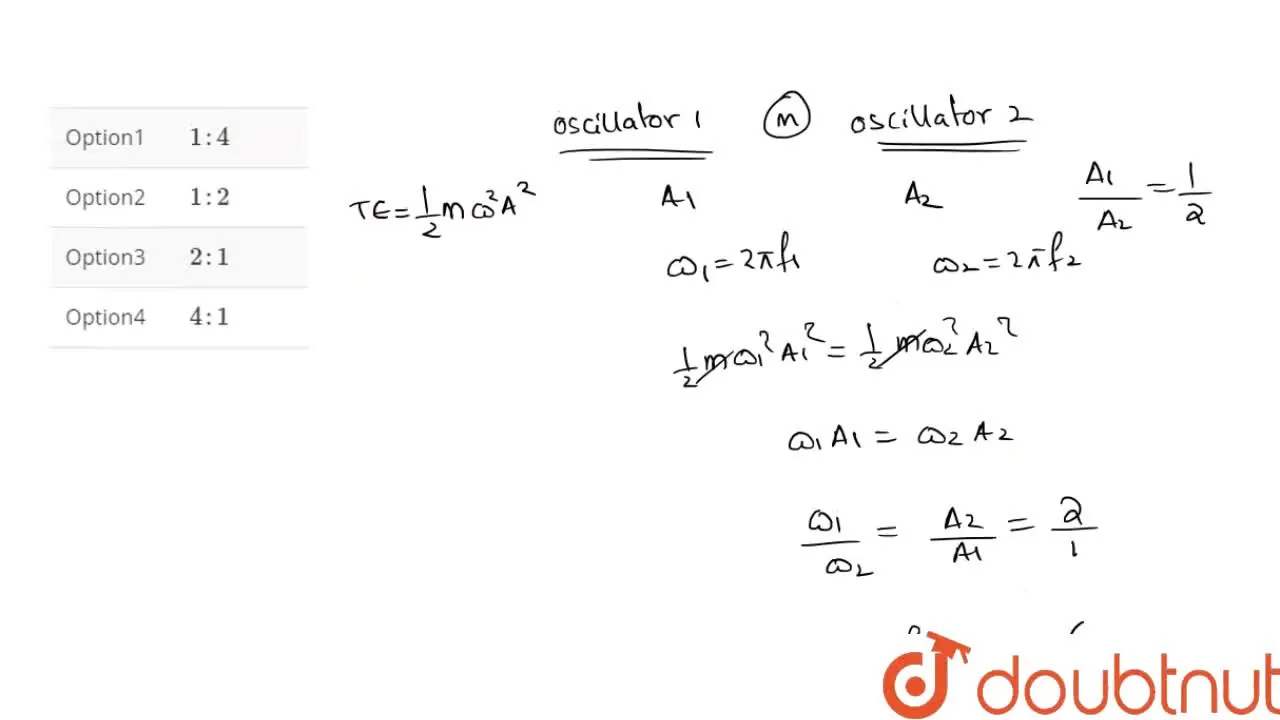 Option1 1 : 4
Option2 1 : 2
Option3 2 : 1
Option4 4 : 1
oscillator 1 m oscillator 2
TE = 1/2 m ω² A²
A1 A2 A1/A2 = 1/2
ω1 = 2πf1 ω2 = 2πf2
1/2 m ω1² A1² = 1/2 m ω2² A2²
ω1 A1 = ω2 A2
ω1/ω2 = A2/A1 = 2/1
doubtnut